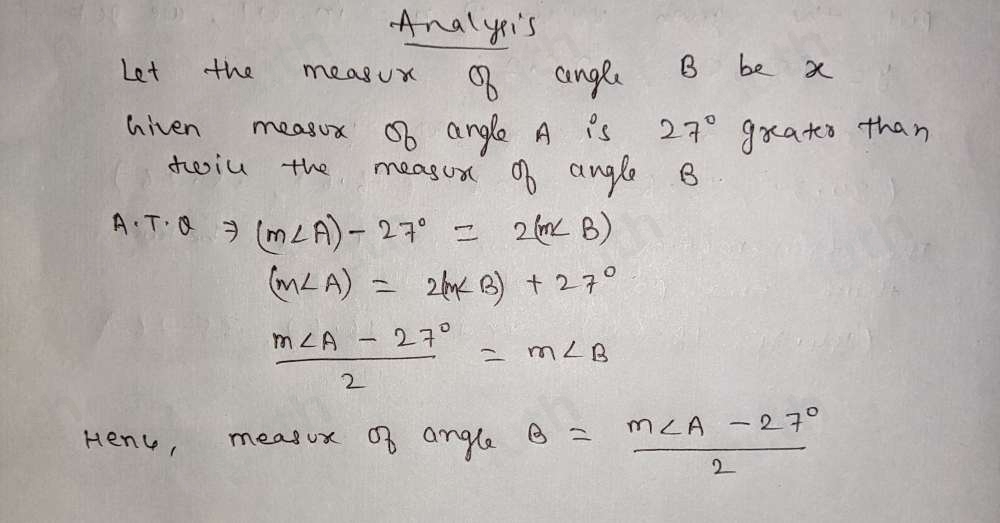 Analysis
Let the measure of angle B be x
Given measure of angle A is 27° greater than
twice the measure of angle B
A.T.Q ⇒ (m∠A) - 27° = 2(m∠B)
(m∠A) = 2(m∠B) + 27°
m∠A - 27° / 2 = m∠B
Hence, measure of angle B = m∠A - 27° / 2